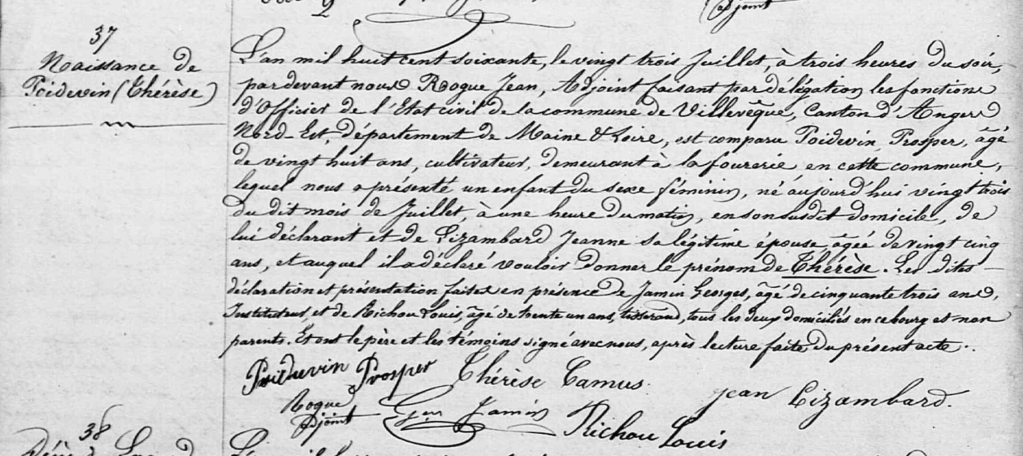 Adjoint
37
Naissance de
Poidevin (Thérèse)
L'an mil huit cent soixante, le vingt trois Juillet, à trois heures du soir,
par devant nous Roque Jean, Adjoint faisant par délégation les fonctions
d'Officier de l'Etat civil de la commune de Villevêque, Canton d'Angers
Nord Est, département de Maine & Loire, est comparu Poidevin Prosper, âgé
de vingt huit ans, cultivateur, demeurant à la fourerie en cette commune,
lequel nous a présenté un enfant du sexe féminin, né aujourd'hui vingt trois
du dit mois de Juillet, à une heure du matin, en son susdit domicile, de
lui déclarant et de Lizambard Jeanne sa légitime épouse, âgée de vingt cinq
ans, et auquel il a déclaré vouloir donner le prénom de Thérèse. Les dites
déclaration et présentation faites en présence de Jamin Georges, âgé de cinquante trois ans,
Instituteur, et de Richou Louis, âgé de trente un ans, tisserand, tous les deux domiciliés en ce bourg et non
parents. Et ont le père et les témoins signé avec nous, après lecture faite du présent acte.
Poiduvin Prosper Thérèse Camus Jean Lizambard.
Roque Adjoint Ges Jamin Richou Louis
38